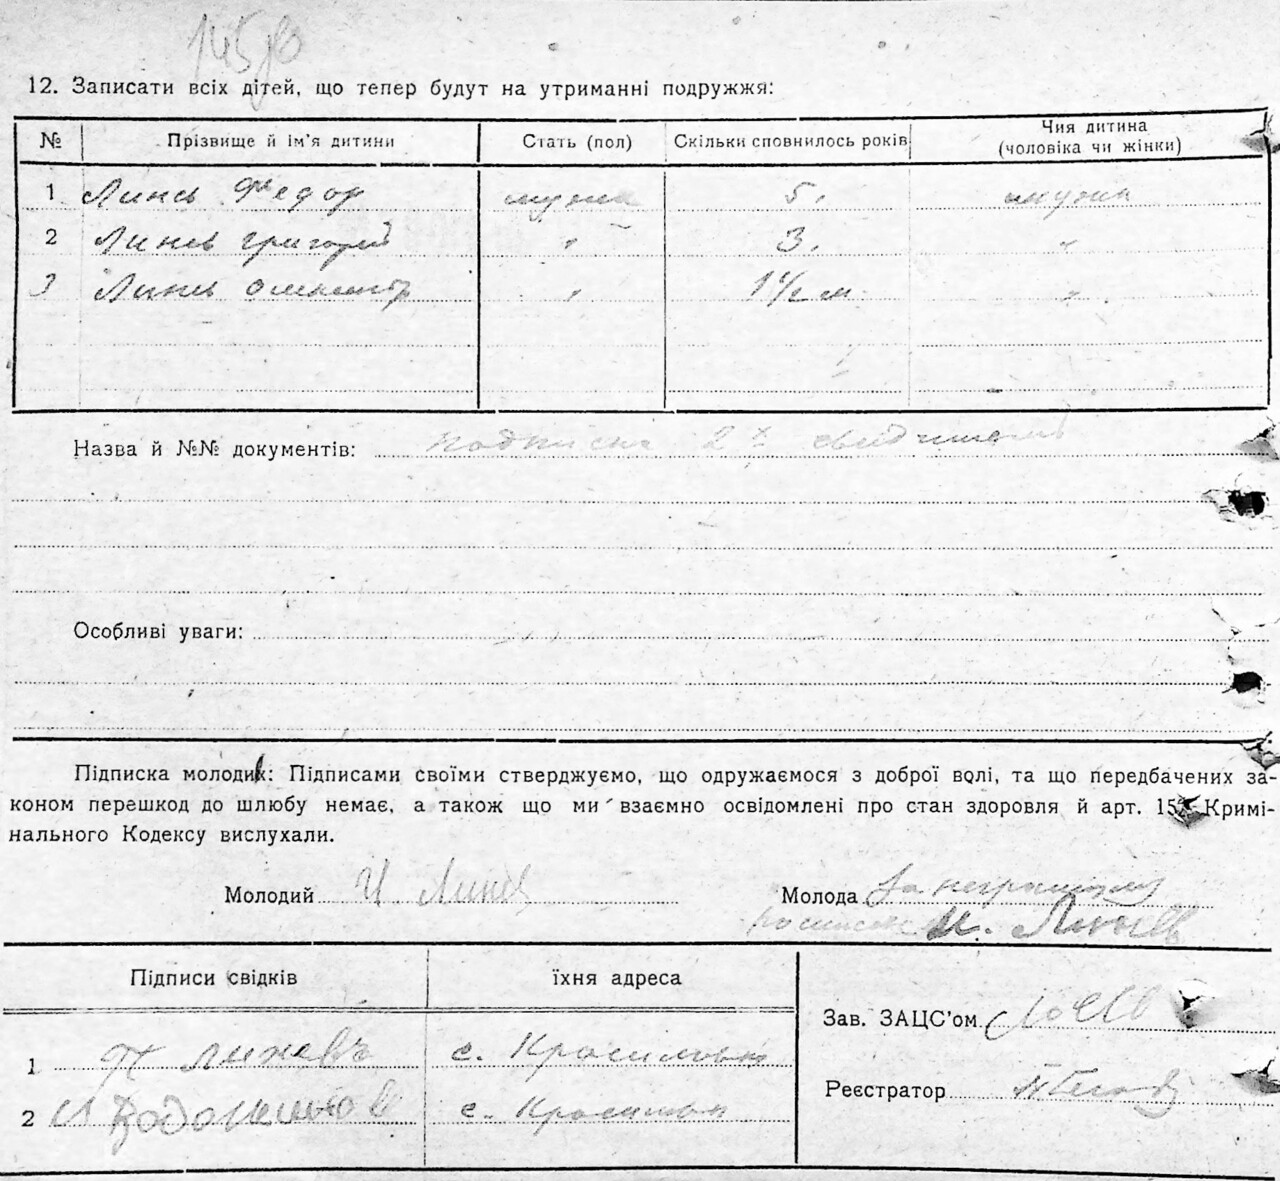 12. Записати всіх дітей, що тепер будут на утриманні подружжя:
№ Прізвище й ім'я дитини Стать (пол) Скільки сповнилось років Чия дитина (чоловіка чи жінки)
1 Линев Федор мужск 5.
2 Линев Григорий " 3. "
3 Линев " 1 1/2 м "
Назва й №№ документів: подписка 2х
Особливі уваги:
Підписка молодих: Підписами своїми стверджуємо, що одружаємося з доброї волі, та що передбачених за-
коном перешкод до шлюбу немає, а також що ми взаємно освідомлені про стан здоровля й арт. 15 Кримі-
нального Кодексу вислухали.
Молодий И Линев Молода за неграмотную
И. Линев
Підписи свідків їхня адреса
Зав. ЗАЦС'ом
1 Линевъ с.
Реєстратор
2 И с.